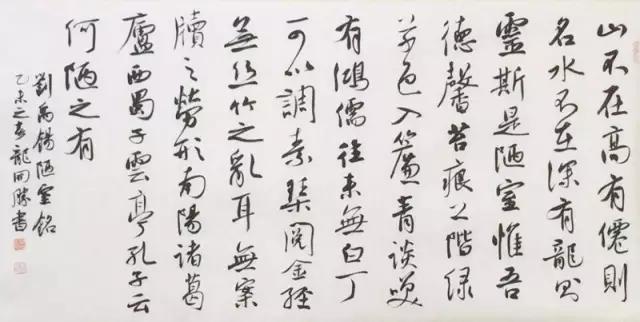 山不在高有僊則
名水不在深有龍則
靈斯是陋室惟吾
德馨苔痕上階綠
草色入簾青談咲
有鴻儒往來無白丁
可以調素琹閱金經
無絲竹之亂耳無案
牘之勞形南陽諸葛
廬西蜀子雲亭孔子云
何陋之有
劉禹錫陋室銘
乙未之春龍開勝書